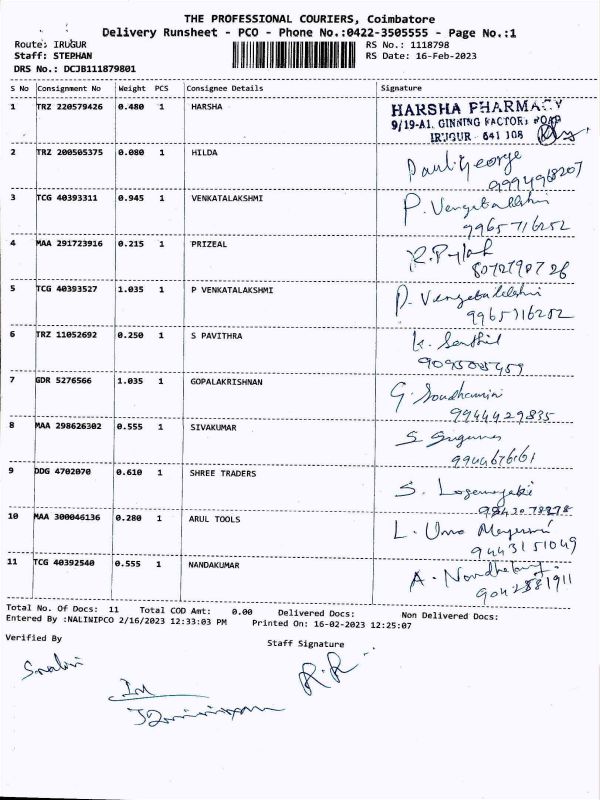 THE PROFESSIONAL COURIERS, Coimbatore
Delivery Runsheet - PCO - Phone No.:0422-3505555 - Page No.:1
Route: IRUGUR RS No.: 1118798
Staff: STEPHAN RS Date: 16-Feb-2023
DRS No.: DCJB111879801
S No Consignment No Weight PCS Consignee Details Signature
1 TRZ 220579426 0.480 1 HARSHA HARSHA PHARMACY
9/19-A1, GINNING FACTORY ROAD
IRUGUR - 641 103
2 TRZ 200505375 0.080 1 HILDA Paul George
9994968207
3 TCG 40393311 0.945 1 VENKATALAKSHMI P. Vengatalakshmi
9965716252
4 MAA 291723916 0.215 1 PRIZEAL
5 TCG 40393527 1.035 1 P VENKATALAKSHMI P. Vengatalakshmi
9965716252
6 TRZ 11052692 0.250 1 S PAVITHRA K. Senthil
7 GDR 5276566 1.035 1 GOPALAKRISHNAN G. Soudhamini
9944429835
8 MAA 298626302 0.555 1 SIVAKUMAR
9944676161
9 DDG 4702070 0.610 1 SHREE TRADERS S. Loganayaki
10 MAA 300046136 0.280 1 ARUL TOOLS L. Uma Mageswari
9443151049
11 TCG 40392540 0.555 1 NANDAKUMAR A. Nandhakumar
9042881911
Total No. Of Docs: 11 Total COD Amt: 0.00 Delivered Docs: Non Delivered Docs:
Entered By :NALINIPCO 2/16/2023 12:33:03 PM Printed On: 16-02-2023 12:25:07
Verified By Staff Signature
R.R